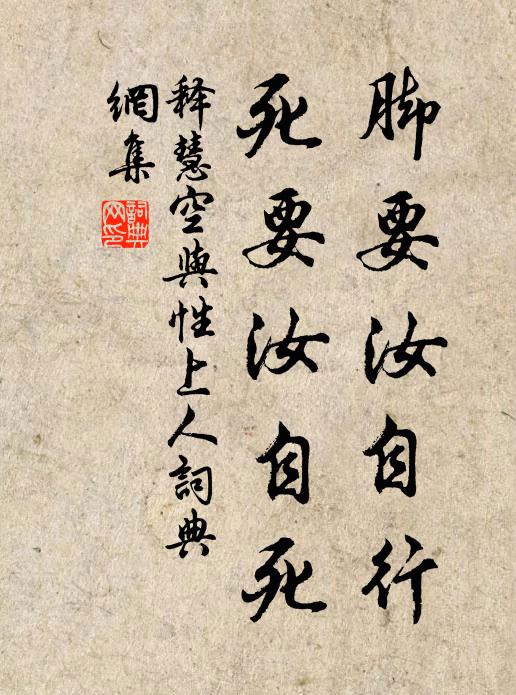 脚要汝自行
死要汝自死
释慧空與性上人詞典
網集
詞典
网印